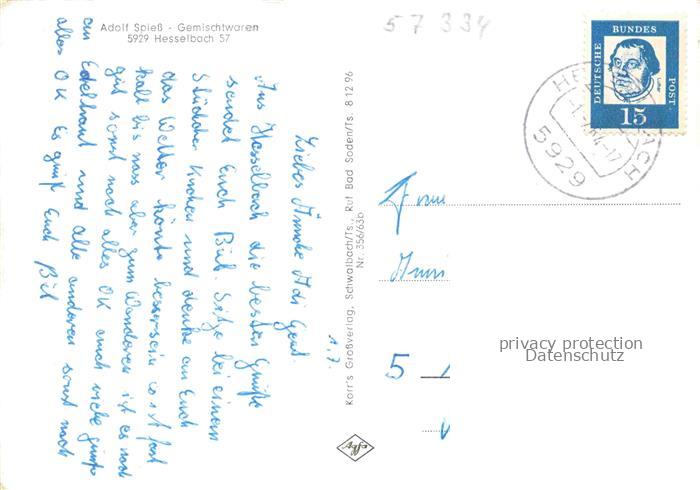 Adolf Spieß - Gemischtwaren
5929 Hesselbach 57
57 334
1.7.
Liebes
Aus Hesselbach die besten Grüße
sendet Euch Büb. Sitze bei einem
Stückchen Kuchen und denke an Euch
das Wetter könnte besser sein es ist fast
kalt bis nass aber zum Wandern ist es noch
gut sonst noch alles OK auch viele Grüße
an und alle anderen sonst noch
alles OK Es grüßt Euch Büb
Korr's Großverlag, Schwalbach/Ts., Ruf Bad Soden/Ts. 8 12 96
Nr. 356/63b
Agfa
DEUTSCHE BUNDESPOST
Luther
15
5929
5
privacy protection
Datenschutz